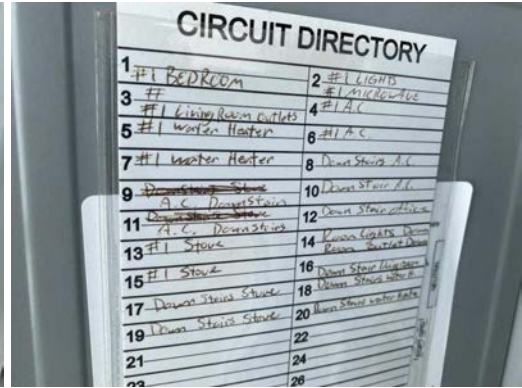 CIRCUIT DIRECTORY
1 #1 BEDROOM
2 #1 LIGHTS
#1 MICROWAVE
3 #
#1 Living Room outlets
4 #1 A.C.
5 #1 water Heater
6 #1 A.C.
7 #1 water Heater
8 Down Stairs A.C.
9 Down Stairs Stove
A.C. DownStairs
10 Down Stair A.C.
11 Down Stairs Stove
A.C. Downstairs
12 Down Stair
13 #1 Stove
14 Room Lights Down
Room Outlet Down
15 #1 Stove
16 Down Stair
17 Down Stairs Stove
18 Down Stairs water H
19 Down Stairs Stove
20 Down Stairs water
21
22
23
24
26